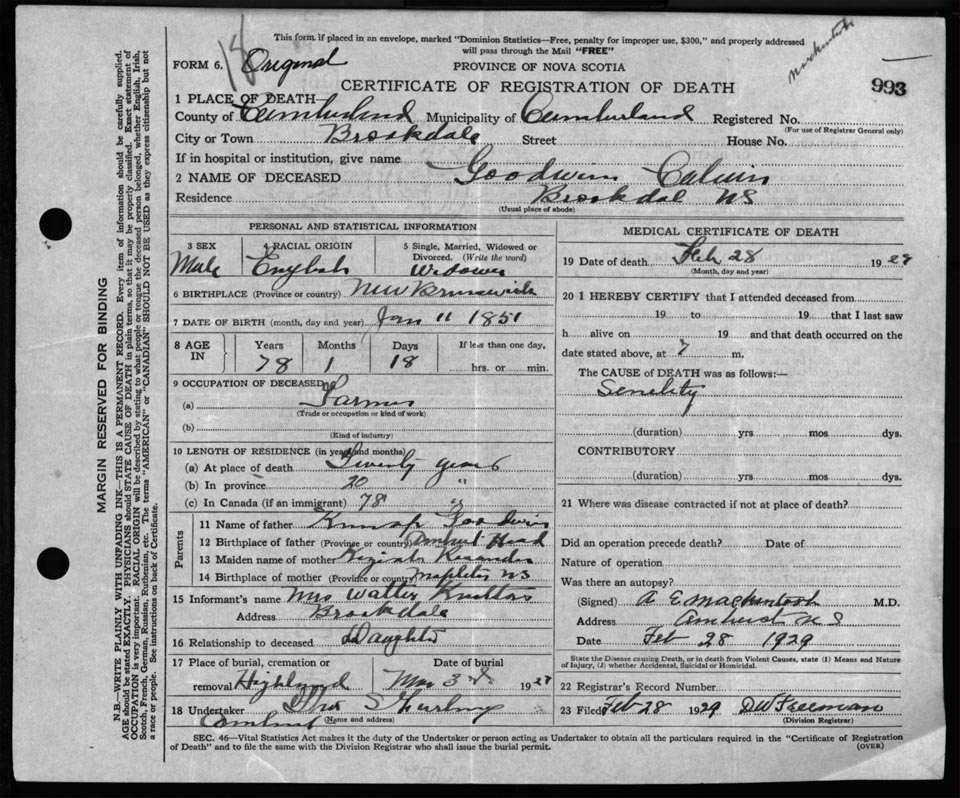 This form if placed in an envelope, marked "Dominion Statistics—Free, penalty for improper use, $300," and properly addressed
will pass through the Mail "FREE"
18 Original
Mackintosh
FORM 6.
PROVINCE OF NOVA SCOTIA
CERTIFICATE OF REGISTRATION OF DEATH
993
1 PLACE OF DEATH—
County of Cumberland Municipality of Cumberland Registered No.
(For use of Registrar General only)
City or Town Brookdale Street House No.
If in hospital or institution, give name
2 NAME OF DECEASED Goodwin Calvin
Residence Brookdal NS
(Usual place of abode)
PERSONAL AND STATISTICAL INFORMATION
3 SEX Male
4 RACIAL ORIGIN English
5 Single, Married, Widowed or Divorced. (Write the word) Widower
6 BIRTHPLACE (Province or country) New Brunswick
7 DATE OF BIRTH (month, day and year) Jan 11 1851
8 AGE IN Years 78 Months 1 Days 18 If less than one day, hrs. or min.
9 OCCUPATION OF DECEASED
(a) Farmer
(Trade or occupation or kind of work)
(b)
(Kind of industry)
10 LENGTH OF RESIDENCE (in years and months)
(a) At place of death Twenty years
(b) In province 20 "
(c) In Canada (if an immigrant) 78 "
Parents
11 Name of father Goodwin
12 Birthplace of father (Province or country) Amherst Head
13 Maiden name of mother Keziah
14 Birthplace of mother (Province or country) Mapleton NS
15 Informant's name Mrs Walter
Address Brookdale
16 Relationship to deceased Daughter
17 Place of burial, cremation or removal Highland
Date of burial Mar 3rd 19
18 Undertaker
Amherst (Name and address)
MEDICAL CERTIFICATE OF DEATH
19 Date of death Feb 28 19
(Month, day and year)
20 I HEREBY CERTIFY that I attended deceased from
19 to 19 that I last saw
h alive on 19 and that death occurred on the
date stated above, at 7 m.
The CAUSE of DEATH was as follows:—
Senelity
(duration) yrs mos dys.
CONTRIBUTORY
(duration) yrs mos dys.
21 Where was disease contracted if not at place of death?
Did an operation precede death? Date of
Nature of operation
Was there an autopsy?
(Signed) A E Mackintosh M.D.
Address Amherst N S
Date Feb 28 1929
State the Disease causing Death, or in death from Violent Causes, state (1) Means and Nature
of Injury, (2) whether Accidental, Suicidal or Homicidal.
22 Registrar's Record Number
23 Filed Feb 28 1929 DW Freeman
(Division Registrar)
SEC. 46—Vital Statistics Act makes it the duty of the Undertaker or person acting as Undertaker to obtain all the particulars required in the "Certificate of Registration
of Death" and to file the same with the Division Registrar who shall issue the burial permit.
(OVER)
MARGIN RESERVED FOR BINDING
N.B.—WRITE PLAINLY WITH UNFADING INK—THIS IS A PERMANENT RECORD. Every item of information should be carefully supplied.
AGE should be stated EXACTLY. PHYSICIANS should STATE CAUSE OF DEATH in plain terms, so that it may be properly classified. Exact statement of
OCCUPATION is very important. RACIAL ORIGIN will be described by stating to what people or tongue the deceased person belonged, whether English, Irish,
Scotch, French, German, Russian, Ruthenian, etc. The terms "AMERICAN" or "CANADIAN" SHOULD NOT BE USED as they express citizenship but not
a race or people. See instructions on back of Certificate.